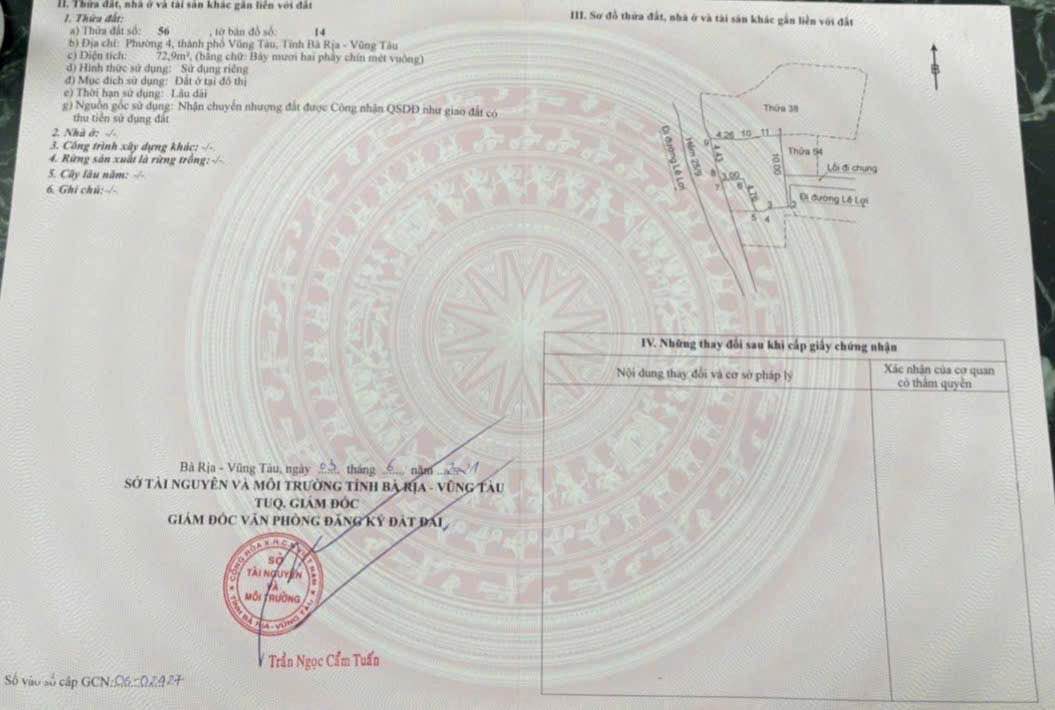 II. Thửa đất, nhà ở và tài sản khác gắn liền với đất
1. Thửa đất:
a) Thửa đất số: 56 , tờ bản đồ số: 14
b) Địa chỉ: Phường 4, thành phố Vũng Tàu, Tỉnh Bà Rịa - Vũng Tàu
c) Diện tích: 72,9m², (bằng chữ: Bảy mươi hai phẩy chín mét vuông)
d) Hình thức sử dụng: Sử dụng riêng
đ) Mục đích sử dụng: Đất ở tại đô thị
e) Thời hạn sử dụng: Lâu dài
g) Nguồn gốc sử dụng: Nhận chuyển nhượng đất được Công nhận QSDĐ như giao đất có
thu tiền sử dụng đất
2. Nhà ở: -/-
3. Công trình xây dựng khác: -/-
4. Rừng sản xuất là rừng trồng: -/-
5. Cây lâu năm: -/-
6. Ghi chú: -/-
Bà Rịa - Vũng Tàu, ngày 03 tháng 6 năm 2021
SỞ TÀI NGUYÊN VÀ MÔI TRƯỜNG TỈNH BÀ RỊA - VŨNG TÀU
TUQ. GIÁM ĐỐC
GIÁM ĐỐC VĂN PHÒNG ĐĂNG KÝ ĐẤT ĐAI
SỞ
TÀI NGUYÊN
VÀ
MÔI TRƯỜNG
TỈNH BÀ RỊA - VŨNG TÀU
Trần Ngọc Cẩm Tuấn
Số vào sổ cấp GCN: 06-02927
III. Sơ đồ thửa đất, nhà ở và tài sản khác gắn liền với đất
B
Thửa 38
9 4.26 10 11 1
Đi đường Lê Lợi
Hẻm 25/9
4.43
10.00
Thửa 94
Lối đi chung
8 3.00
7 6
4.78
Đi đường Lê Lợi
3 2
5 4
IV. Những thay đổi sau khi cấp giấy chứng nhận
Nội dung thay đổi và cơ sở pháp lý
Xác nhận của cơ quan
có thẩm quyền